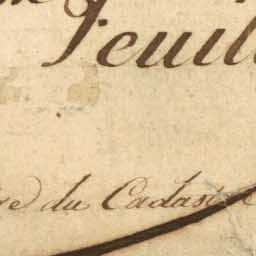 Feuill
re du Cadast